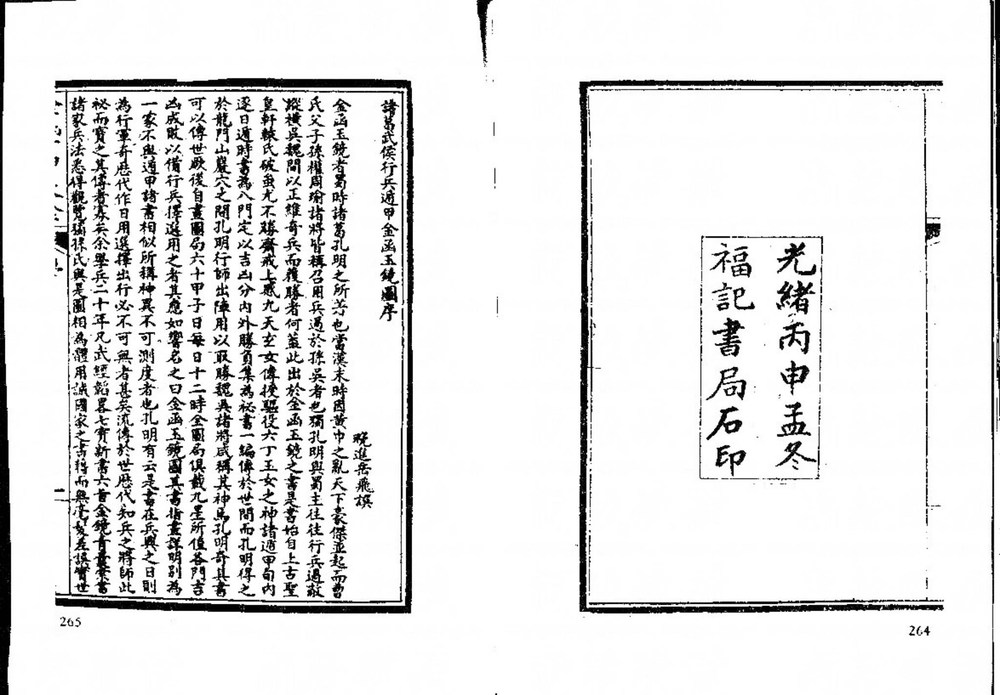 光緒丙申孟冬
福記書局石印
264
諸葛武侯行兵遁甲金函玉鏡圖序
晚進岳飛譔
金函玉鏡者蜀時諸葛孔明之所著也當漢末時因黃巾之亂天下豪傑並起而曹
氏父子孫權周瑜諸將皆稱召用兵過於孫吳者也獨孔明與蜀主往往行兵過敵
縱橫吳魏間以正維奇兵而獲勝者何蓋此出於金函玉鏡之書是書始自上古聖
皇軒轅氏破蚩尤不勝齋戒上感九天玄女傳授驅役六丁玉女之神諸遁甲旬內
逐日遁時書為八門定以吉凶分內外勝負集為祕書一編傳於世間而孔明得之
於龍門山巖穴之間孔明行師出陣用以取勝魏吳諸將咸稱其神焉孔明奇其書
可以傳世厥後自畫圖局六十甲子日每日十二時全圖局俱載九星所值各門吉
凶成敗以備行兵擇選用之者其應如響名之曰金函玉鏡圖其書指畫詳明別為
一家不與遁甲諸書相似所稱神異不可測度者也孔明有云是書在兵興之日則
為行軍奇歷代作日用選擇出行必不可無者甚矣流傳於世歷代知兵之將師此
祕而寶之其傳者寡矣余學兵二十年凡武經韜畧七寶新書六書金鏡青囊禁書
諸家兵法悉得觀覽獨孫氏與是圖相為體用誠國家之書將而無毫髮差誤實世
一
265